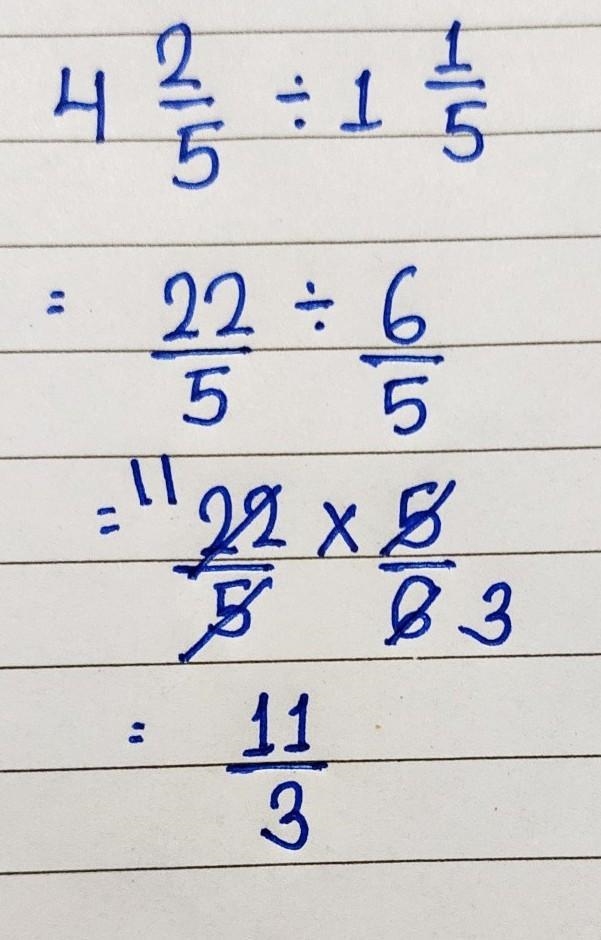 4 2/5 ÷ 1 1/5
= 22/5 ÷ 6/5
= 11 22/5 × 5/6 3
= 11/3